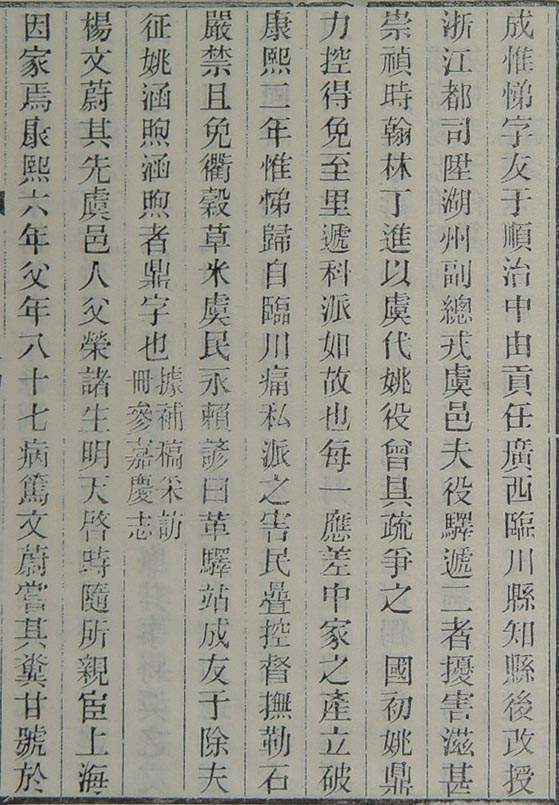 成惟悌字友于順治中由貢任廣西臨川縣知縣後改授
浙江都司陞湖州副總戎虞邑夫役驛遞二者擾害滋甚
崇禎時翰林丁進以虞代姚役曾具疏爭之　國初姚鼎
力控得免至里遞科派如故也每一應差中家之產立破
康熙二年惟悌歸自臨川痛私派之害民疊控督撫勒石
嚴禁且免衢穀草米虞民永賴諺曰革驛站成友于除夫
征姚涵煦涵煦者鼎字也據補稿采訪
冊參嘉慶志
楊文蔚其先虞邑人父榮諸生明天啓時隨所親宦上海
因家焉康熙六年父年八十七病篤文蔚嘗其糞甘號於